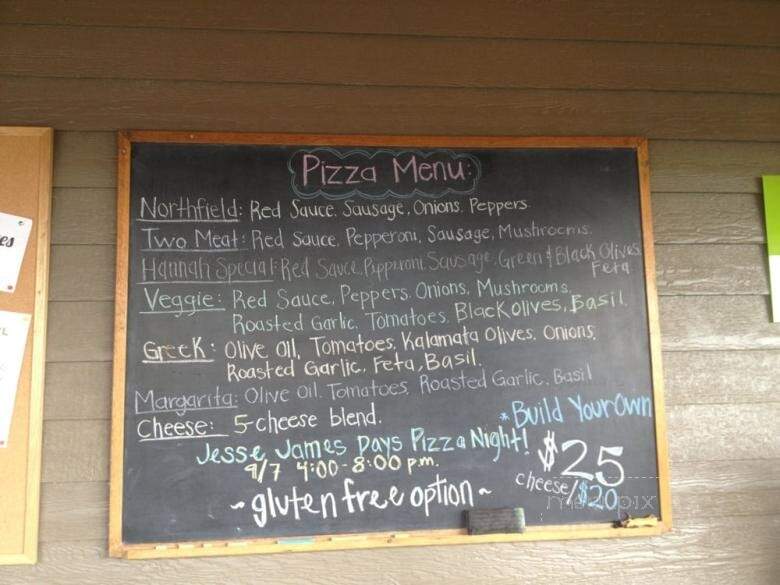 Pizza Menu:
Northfield: Red Sauce, Sausage, Onions, Peppers
Two Meat: Red Sauce, Pepperoni, Sausage, Mushrooms.
Hannah Special: Red Sauce, Pepperoni, Sausage, Green & Black Olives,
Feta
Veggie: Red Sauce, Peppers, Onions, Mushrooms,
Roasted Garlic, Tomatoes, Black Olives, Basil
Greek: Olive Oil, Tomatoes, Kalamata Olives, Onions,
Roasted Garlic, Feta, Basil.
Margarita: Olive Oil, Tomatoes, Roasted Garlic, Basil
Cheese: 5-cheese blend.
*Build Your Own
Jesse James Days Pizza Night!
9/7 4:00-8:00 p.m.
$25
cheese/$20
~gluten free option~